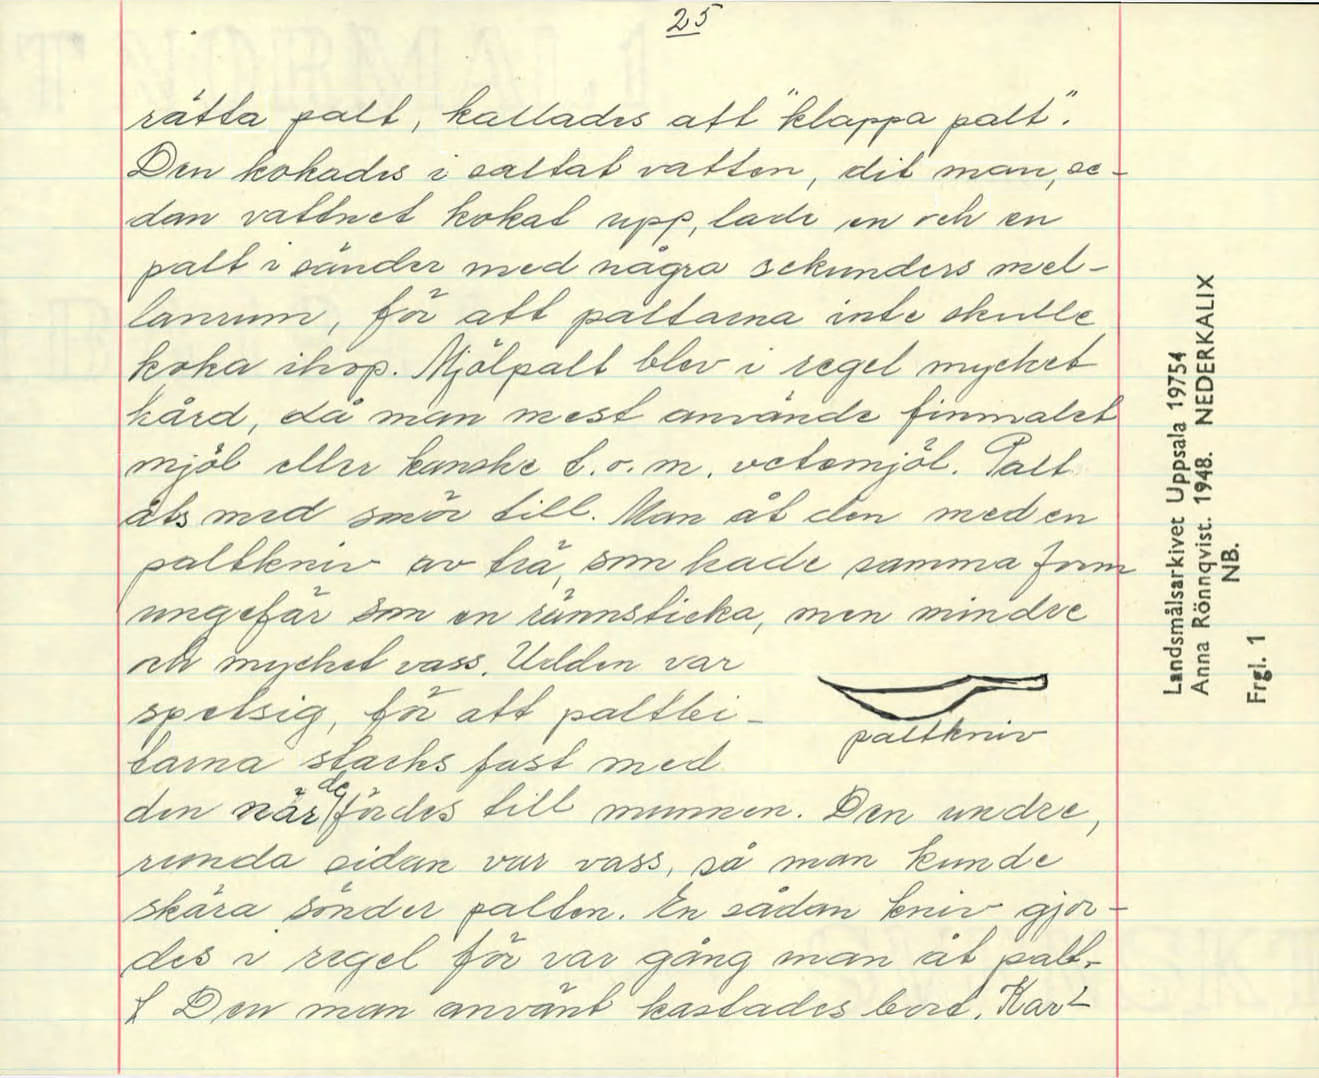 25
rätta palt, kallades att "klappa palt".
Den kokades i saltat vatten, dit man, se-
dan vattnet kokat upp, lade en och en
palt i sänder med några sekunders mel-
lanrum, för att paltarna inte skulle
koka ihop. Mjölpalt blev i regel mycket
hård, då man mest använde finmalet
mjöl eller kanske t.o.m. vetemjöl. Palt
åts med smör till. Man åt den med en
paltkniv av trä, som hade samma form
ungefär som en rännsticka, men mindre
och mycket vass. Udden var
spetsig, för att paltbi-
tarna stacks fast med
den när de fördes till munnen. Den undre,
runda sidan var vass, så man kunde
skära sönder palten. En sådan kniv gjor-
des i regel för var gång man åt palt.
Den man använt kastades bort. Kar
paltkniv
Landsmålsarkivet Uppsala 19754
Anna Rönnqvist. 1948. NEDERKALIX
NB.
Frgl. 1